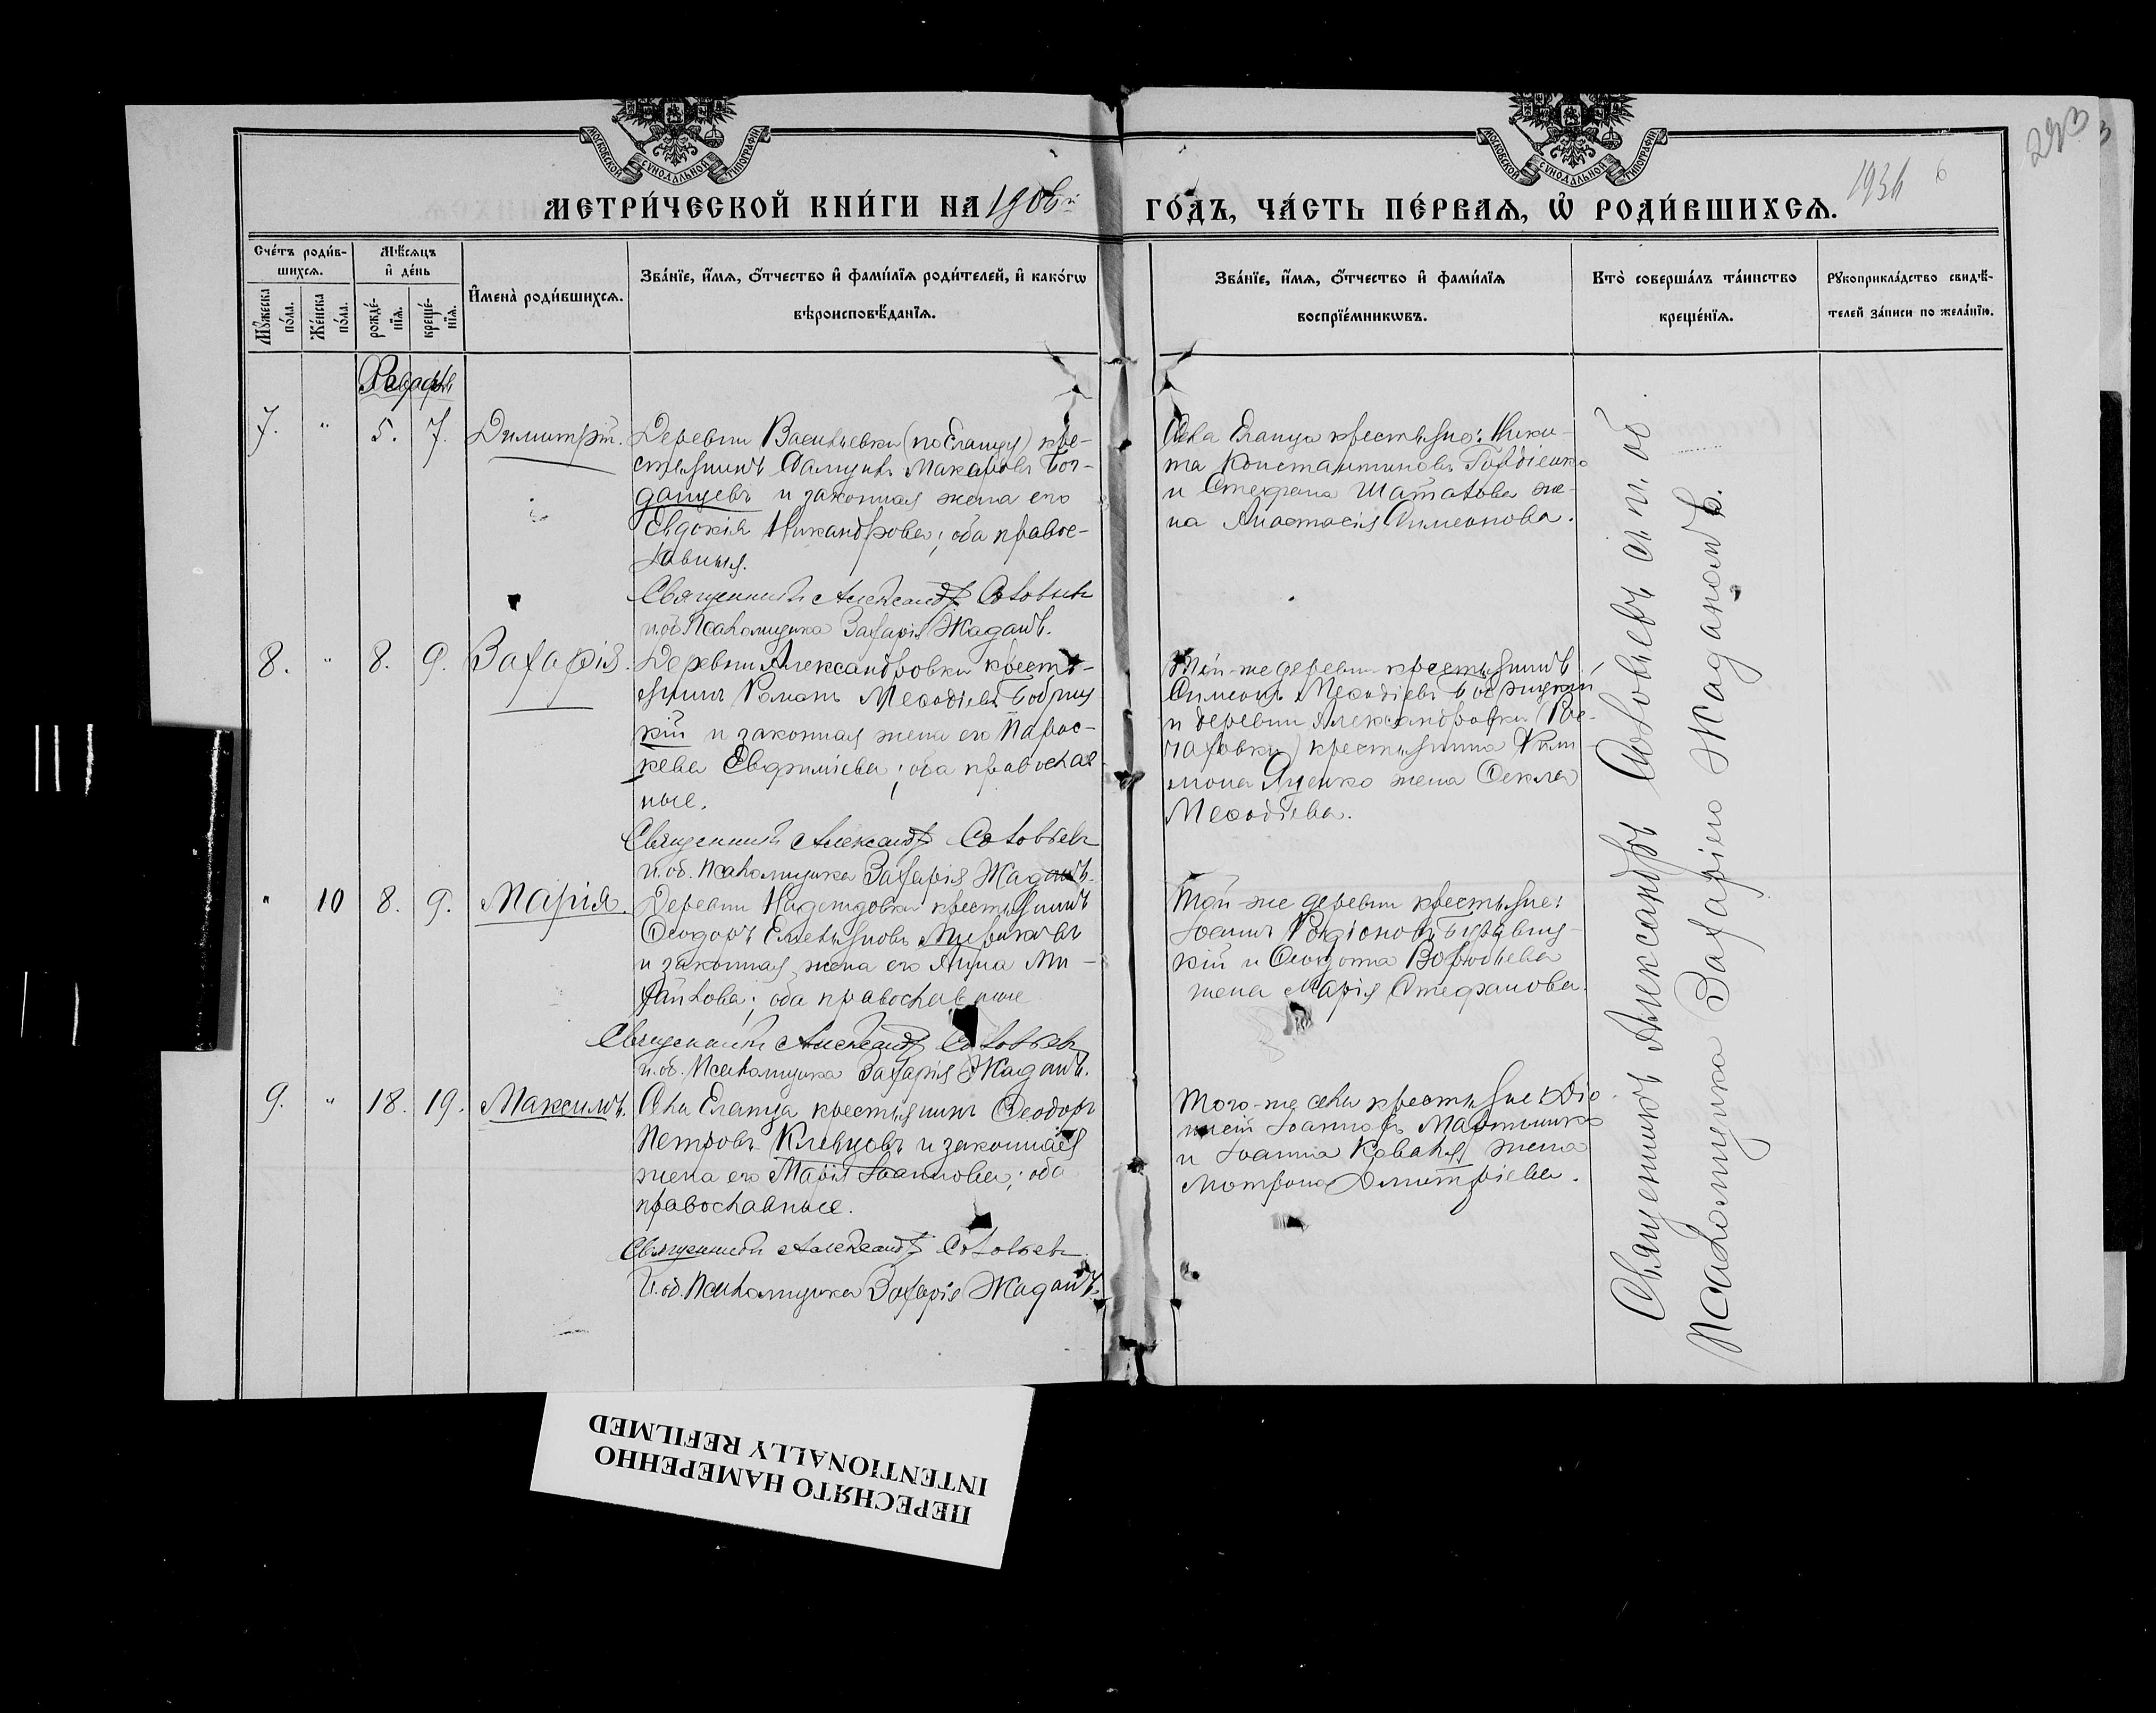 МОСКОВСКОЙ СѴНОДАЛЬНОЙ ТИПОГРАФІИ
МОСКОВСКОЙ СѴНОДАЛЬНОЙ ТИПОГРАФІИ
МЕТРИ́ЧЕСКОЙ КНИ́ГИ НА 1906й ГО́ДЪ, ЧА́СТЬ ПЕ́РВАЯ, Ѡ҆ РОДИ́ВШИХСЯ.
Сче́тъ роди́в-
шихся.
Мѣ́сяцъ
и҆ де́нь
Мꙋ́жеска
по́ла.
Же́нска
по́ла.
рожде́-
нїя.
креще́-
нїя.
И҆мена̀ роди́вшихся.
Зва́нїе, и҆́мя, ѻ҆́тчество и҆ фами́лїя роди́телей, и҆ како́гѡ
вѣроисповѣ́данїя.
Зва́нїе, и҆́мя, ѻ҆́тчество и҆ фами́лїя
воспрїе́мникѡвъ.
Кто̀ соверша́лъ та́инство
креще́нїя.
Рꙋкоприкла́дство свидѣ́-
телей за́писи по жела́нїю.
Февраль
7. " 5. 7. Димитрій.
Деревни Васильевки (по Еланцу) кре-
стьянинъ Макаровъ Бог-
данцевъ и законная жена его
Евдокія Никандрова; оба правос-
лавныя.
Священникъ Александръ Соловьевъ
и.об. Псаломщика Захарія Жаданъ.
Села Еланца крестьяне: Ники-
та Константиновъ Гордіенко
и Стефана Шаталова же-
на Анастасія Симеонова.
8. " 8. 9. Захарія.
Деревни Александровки кресть-
янинъ Романъ Меѳодіевъ Бобриц
кій и законная жена его Парас-
кева Евфиміева; оба православ
ные.
Священникъ Александръ Соловьевъ
и.об. Псаломщика Захарія Жаданъ.
Той-же деревни крестьянинъ
Симеонъ Меѳодіевъ Бобрицкій
и деревни Александровки
крестьянина Фили-
мона Яценко жена Ѳекла
Меѳодіева.
" 10 8. 9. Марія.
Деревни Надеждовки крестьянинъ
Ѳеодоръ Емельяновъ
и законная жена его Анна Ми-
хайлова; оба православные
Священникъ Александръ Соловьевъ
и.об. Псаломщика Захарія Жаданъ.
Той-же деревни крестьяне:
Іоаннъ Родіоновъ
кій и Ѳеодота
жена Марія Стефанова.
9. " 18. 19. Максимъ.
Села Еланца крестьянинъ Ѳеодоръ
Петровъ Клевцовъ и законная
жена его Марія Іоаннова; оба
православные.
Священникъ Александръ Соловьевъ
И.об. Псаломщика Захарія Жаданъ.
Того-же села крестьяне: Діо-
нисій Іоанновъ Мартыненко
и Іоанна Коваля жена
Мотрона Димитріева.
Священникъ Александръ Соловьевъ съ и. об.
Псаломщика Захаріею Жаданомъ.
ПЕРЕСНЯТО НАМЕРЕННО
INTENTIONALLY REFILMED